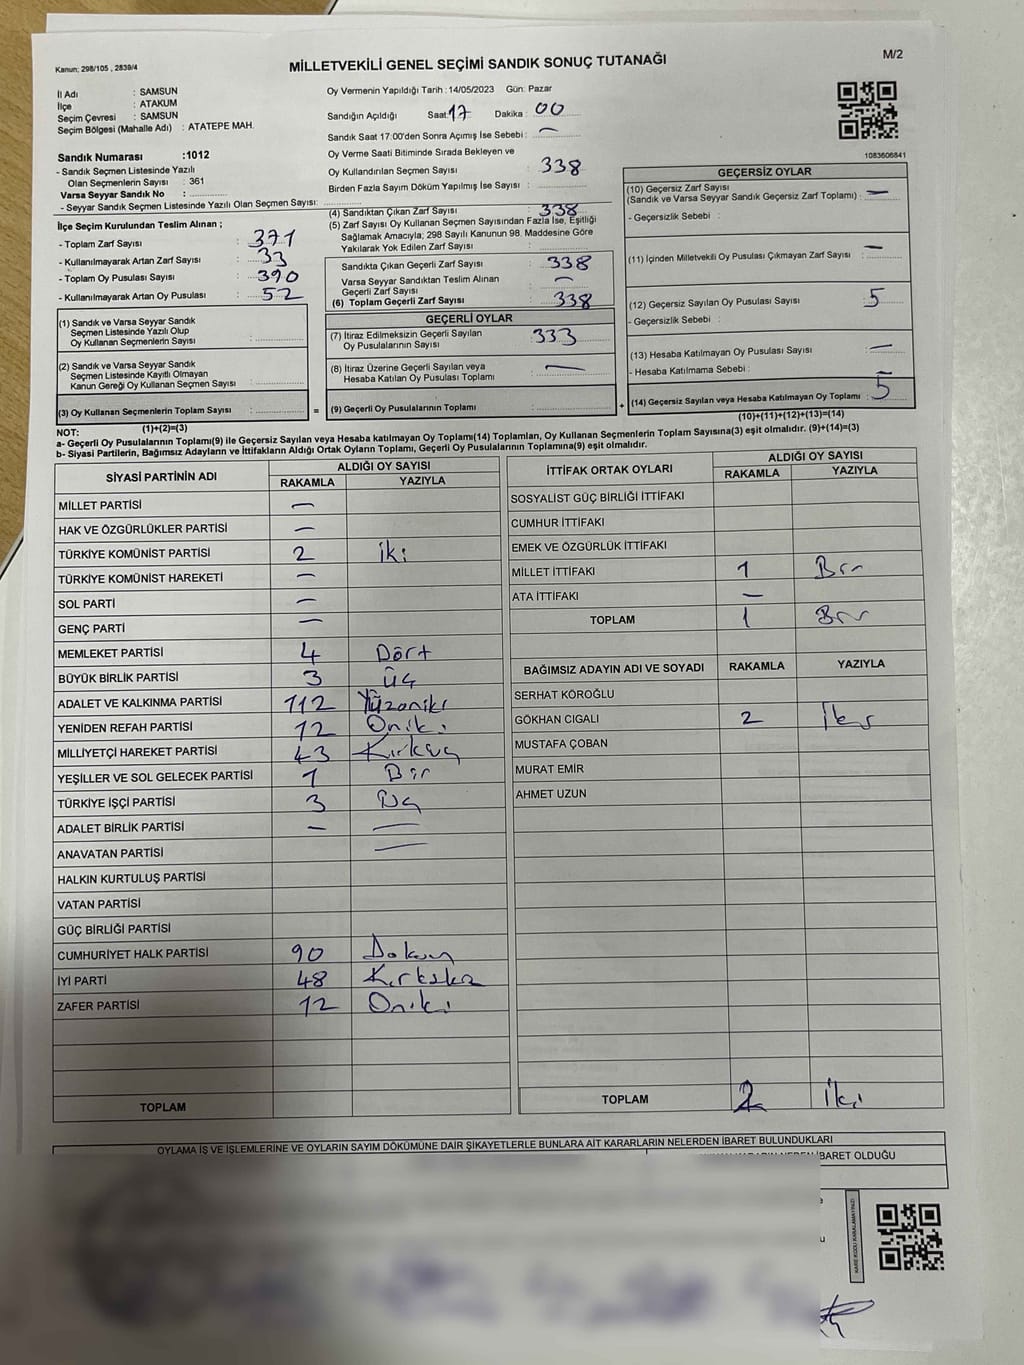 Kanun: 298/105 , 2839/4
MİLLETVEKİLİ GENEL SEÇİMİ SANDIK SONUÇ TUTANAĞI
M/2
İl Adı : SAMSUN
İlçe : ATAKUM
Seçim Çevresi : SAMSUN
Seçim Bölgesi (Mahalle Adı) : ATATEPE MAH.
Sandık Numarası :1012
- Sandık Seçmen Listesinde Yazılı
Olan Seçmenlerin Sayısı : 361
Varsa Seyyar Sandık No :
- Seyyar Sandık Seçmen Listesinde Yazılı Olan Seçmen Sayısı:
İlçe Seçim Kurulundan Teslim Alınan ;
- Toplam Zarf Sayısı : 371
- Kullanılmayarak Artan Zarf Sayısı : 33
- Toplam Oy Pusulası Sayısı : 390
- Kullanılmayarak Artan Oy Pusulası : 52
(1) Sandık ve Varsa Seyyar Sandık
Seçmen Listesinde Yazılı Olup
Oy Kullanan Seçmenlerin Sayısı :
(2) Sandık ve Varsa Seyyar Sandık
Seçmen Listesinde Kayıtlı Olmayan
Kanun Gereği Oy Kullanan Seçmen Sayısı :
(3) Oy Kullanan Seçmenlerin Toplam Sayısı :
(1)+(2)=(3)
Oy Vermenin Yapıldığı Tarih : 14/05/2023 Gün: Pazar
Sandığın Açıldığı Saat: 17 Dakika : 00
Sandık Saat 17:00'den Sonra Açımış İse Sebebi : —
Oy Verme Saati Bitiminde Sırada Bekleyen ve
Oy Kullandırılan Seçmen Sayısı : 338
Birden Fazla Sayım Döküm Yapılmış İse Sayısı :
(4) Sandıktan Çıkan Zarf Sayısı : 338
(5) Zarf Sayısı Oy Kullanan Seçmen Sayısından Fazla İse, Eşitliği
Sağlamak Amacıyla; 298 Sayılı Kanunun 98. Maddesine Göre
Yakılarak Yok Edilen Zarf Sayısı :
Sandıkta Çıkan Geçerli Zarf Sayısı : 338
Varsa Seyyar Sandıktan Teslim Alınan
Geçerli Zarf Sayısı : —
(6) Toplam Geçerli Zarf Sayısı : 338
GEÇERLİ OYLAR
(7) İtiraz Edilmeksizin Geçerli Sayılan
Oy Pusulalarının Sayısı : 333
(8) İtiraz Üzerine Geçerli Sayılan veya
Hesaba Katılan Oy Pusulası Toplamı : —
= (9) Geçerli Oy Pusulalarının Toplamı :
1083606841
GEÇERSİZ OYLAR
(10) Geçersiz Zarf Sayısı
(Sandık ve Varsa Seyyar Sandık Geçersiz Zarf Toplamı) : —
- Geçersizlik Sebebi :
(11) İçinden Milletvekili Oy Pusulası Çıkmayan Zarf Sayısı : —
(12) Geçersiz Sayılan Oy Pusulası Sayısı : 5
- Geçersizlik Sebebi :
(13) Hesaba Katılmayan Oy Pusulası Sayısı : —
- Hesaba Katılmama Sebebi :
+ (14) Geçersiz Sayılan veya Hesaba Katılmayan Oy Toplamı : 5
(10)+(11)+(12)+(13)=(14)
NOT:
a- Geçerli Oy Pusulalarının Toplamı(9) ile Geçersiz Sayılan veya Hesaba katılmayan Oy Toplamı(14) Toplamları, Oy Kullanan Seçmenlerin Toplam Sayısına(3) eşit olmalıdır. (9)+(14)=(3)
b- Siyasi Partilerin, Bağımsız Adayların ve İttifakların Aldığı Ortak Oyların Toplamı, Geçerli Oy Pusulalarının Toplamına(9) eşit olmalıdır.
SİYASİ PARTİNİN ADI ALDIĞI OY SAYISI
RAKAMLA YAZIYLA
MİLLET PARTİSİ —
HAK VE ÖZGÜRLÜKLER PARTİSİ —
TÜRKİYE KOMÜNİST PARTİSİ 2 iki
TÜRKİYE KOMÜNİST HAREKETİ —
SOL PARTİ —
GENÇ PARTİ —
MEMLEKET PARTİSİ 4 Dört
BÜYÜK BİRLİK PARTİSİ 3 Üç
ADALET VE KALKINMA PARTİSİ 112 Yüzoniki
YENİDEN REFAH PARTİSİ 12 Oniki
MİLLİYETÇİ HAREKET PARTİSİ 43 Kırküç
YEŞİLLER VE SOL GELECEK PARTİSİ 1 Bir
TÜRKİYE İŞÇİ PARTİSİ 3 Üç
ADALET BİRLİK PARTİSİ — —
ANAVATAN PARTİSİ —
HALKIN KURTULUŞ PARTİSİ
VATAN PARTİSİ
GÜÇ BİRLİĞİ PARTİSİ
CUMHURİYET HALK PARTİSİ 90 Doksan
İYİ PARTİ 48 Kırksekiz
ZAFER PARTİSİ 12 Oniki
TOPLAM
İTTİFAK ORTAK OYLARI ALDIĞI OY SAYISI
RAKAMLA YAZIYLA
SOSYALİST GÜÇ BİRLİĞİ İTTİFAKI
CUMHUR İTTİFAKI
EMEK VE ÖZGÜRLÜK İTTİFAKI
MİLLET İTTİFAKI 1 Bir
ATA İTTİFAKI —
TOPLAM 1 Bir
BAĞIMSIZ ADAYIN ADI VE SOYADI RAKAMLA YAZIYLA
SERHAT KÖROĞLU
GÖKHAN CIGALI 2 İki
MUSTAFA ÇOBAN
MURAT EMİR
AHMET UZUN
TOPLAM 2 İki
OYLAMA İŞ VE İŞLEMLERİNE VE OYLARIN SAYIM DÖKÜMÜNE DAİR ŞİKAYETLERLE BUNLARA AİT KARARLARIN NELERDEN İBARET BULUNDUKLARI
İBARET OLDUĞU
KARE KODU KARALAMAYINIZ!